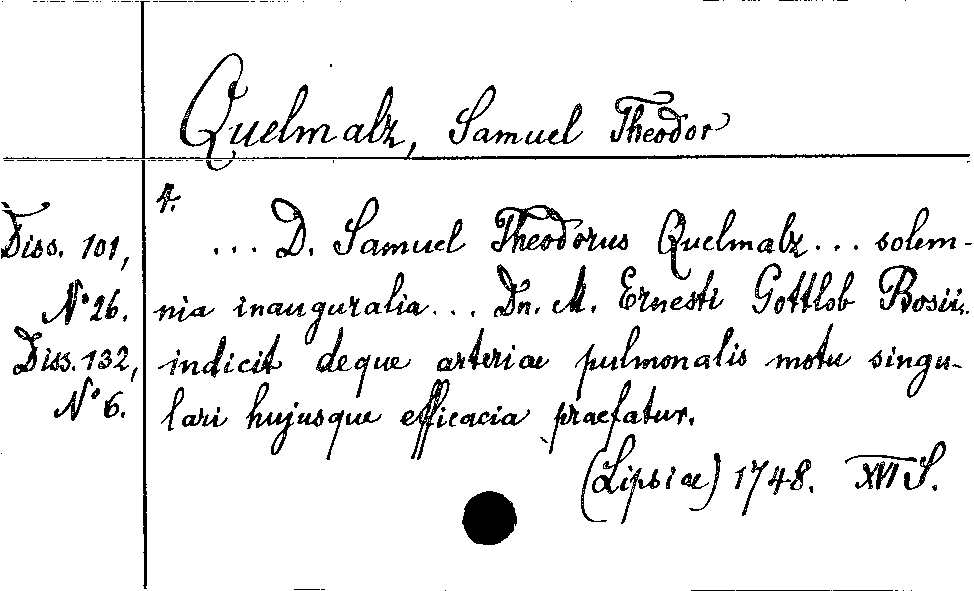 Quelmalz, Samuel Theodor
4.
Diss. 101,
N° 26.
Diss. 132,
N° 6.
... D. Samuel Theodorus Quelmalz ... solem-
nia inauguralia ... Dn. M. Ernesti Gottlob Bosii.
indicit deque arteriae pulmonalis motu singu-
lari hujusque efficacia praefatur.
(Lipsiae) 1748. XVI S.